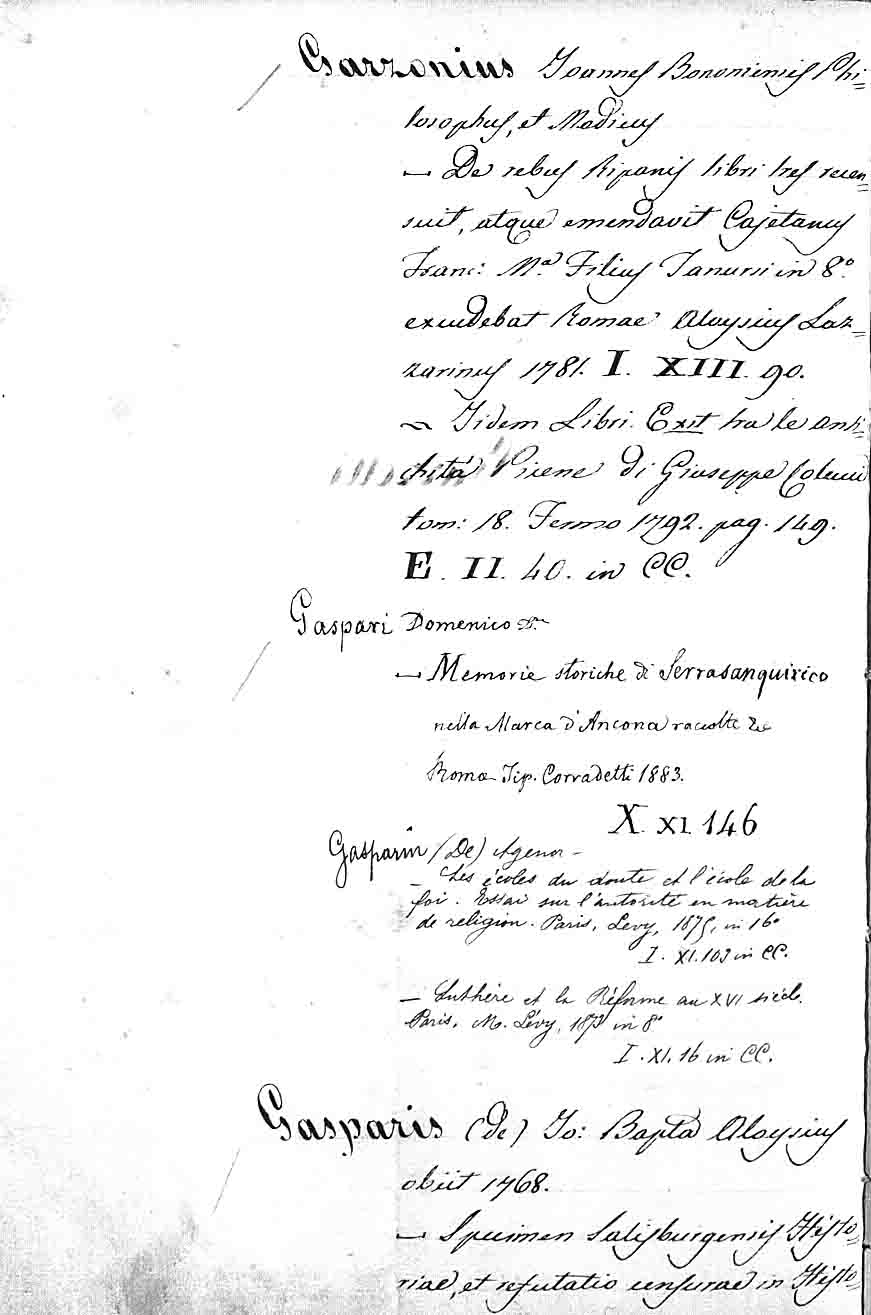 Garzonius Joannes Bononiensis Phi=
losophus, et Medicus
— De rebus Ripanis libri tres recen=
suit, atque emendavit Cajetanus
Franc: Mª Filius Tanursi in 8º
excudebat Romae Aloysius Laz=
zarinus 1781. I. XIII. 90.
— Iidem Libri. Exit tra le anti=
chità Picene di Giuseppe Colucci
tom: 18. Fermo 1792. pag. 149.
E. II. 40. in CC.
Gaspari Domenico Dr.
— Memorie storiche di Serrasanquirico
nella Marca d'Ancona raccolte &c
Roma Tip. Corradetti 1883.
X. XI. 146
Gasparin (De) Agenor -
— Les écoles du doute et l'école de la
foi. Essai sur l'autorité en matière
de religion. Paris, Levy, 1875, in 16º
I. XI. 103 in CC.
— Luthère et la Réforme au XVI siècle.
Paris, M. Lévy, 1873 in 8º
I. XI. 16 in CC.
Gasparis (de) Jo: Bapta Aloysius
obiit 1768.
— Specimen Salisburgensis Histo=
riae, et refutatio censurae in Histo=